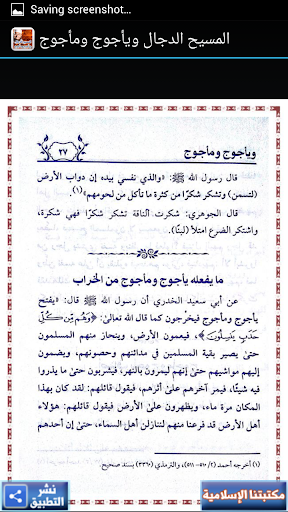 Saving screenshot...
المسيح الدجال ويأجوج ومأجوج
ويأجوج ومأجوج
٢٧
قال رسول الله ﷺ: «والذي نفسي بيده إن دواب الأرض
لتسمن) وتشكر شكرًا من كثرة ما تأكل من لحومهم»(١).
قال الجوهري: شكرت الناقة تشكر شكرًا فهي شكرة،
واشتكر الضرع امتلأ (لبنًا).
ما يفعله يأجوج ومأجوج من الخراب
عن أبي سعيد الخدري أن رسول الله ﷺ قال: «يفتح
يأجوج ومأجوج فيخرجون كما قال الله تعالى: ﴿وَهُم مِّن كُلِّ
حَدَبٍ يَنسِلُونَ﴾، فيعمون الأرض، وينحاز منهم المسلمون
حتى يصير بقية المسلمين في مدائنهم وحصونهم، ويضمون
إليهم مواشيهم حتى إنهم ليمرون بالنهر، فيشربون حتى ما يذروا
فيه شيئًا، فيمر آخرهم على أثرهم، فيقول قائلهم: لقد كان بهذا
المكان مرة ماء، ويظهرون على الأرض فيقول قائلهم: هؤلاء
أهل الأرض قد فرغنا منهم لننازلن أهل السماء، حتى إن أحدهم
(١) أخرجه أحمد (٢/ ٥١٠- ٥١١)، والترمذي (٣٣٦٠) بسند صحيح.
نشر
التطبيق
مكتبتنا الإسلامية